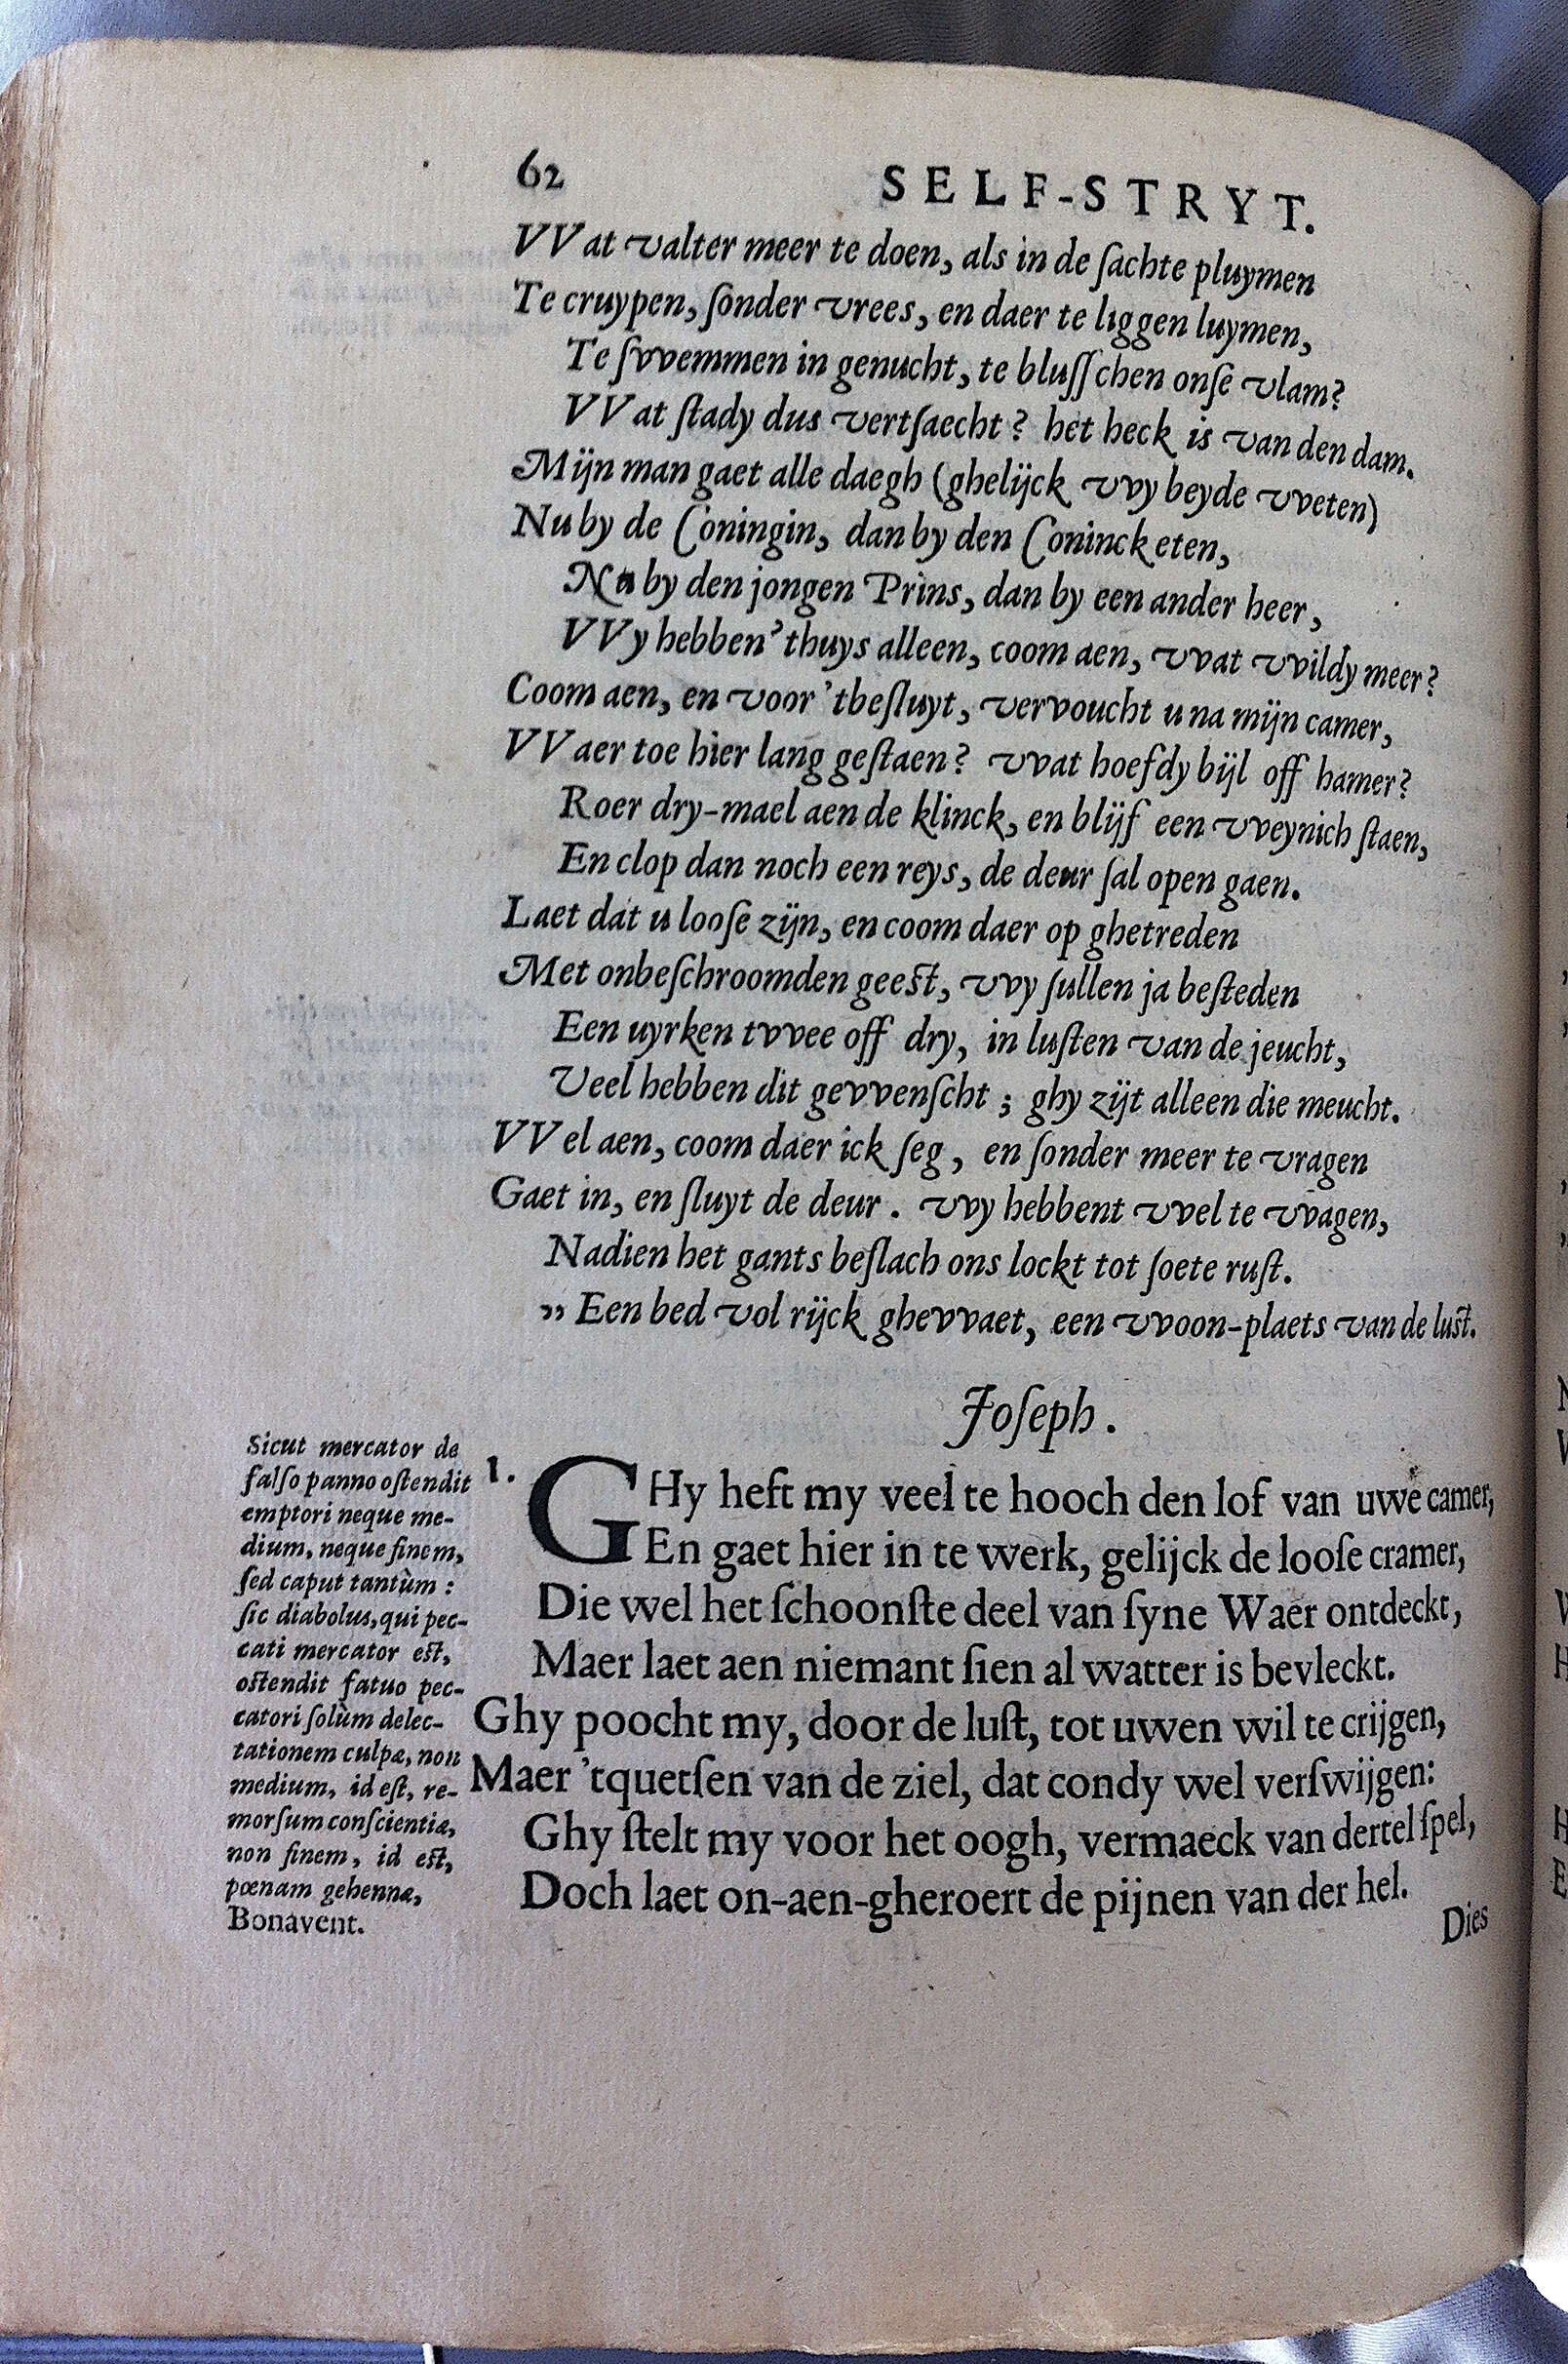 62
SELF-STRYT.
VVat valter meer te doen, als in de ſachte pluymen
Te cruypen, ſonder vrees, en daer te liggen luymen,
Te ſvvemmen in genucht, te bluſſchen onſe vlam?
VVat ſtady dus vertſaecht? het heck is van den dam.
Mijn man gaet alle daegh (ghelijck vvy beyde vveten)
Nu by de Coningin, dan by den Coninck eten,
Nu by den jongen Prins, dan by een ander heer,
VVy hebben'thuys alleen, coom aen, vvat vvildy meer?
Coom aen, en voor 'tbeſluyt, vervoucht u na mijn camer,
VVaer toe hier lang geſtaen? vvat hoefdy bijl off hamer?
Roer dry-mael aen de klinck, en blijf een vveynich ſtaen,
En clop dan noch een reys, de deur ſal open gaen.
Laet dat u looſe zijn, en coom daer op ghetreden
Met onbeſchroomden geeſt, vvy ſullen ja beſteden
Een uyrken tvvee off dry, in luſten van de jeucht,
Veel hebben dit gevvenſcht ; ghy zijt alleen die meucht.
VVel aen, coom daer ick ſeg, en ſonder meer te vragen
Gaet in, en ſluyt de deur. vvy hebbent vvel te vvagen,
Nadien het gants beſlach ons lockt tot ſoete ruſt.
„ Een bed vol rijck ghevvaet, een vvoon-plaets van de luſt.
Joſeph.
1.
GHy heft my veel te hooch den lof van uwe camer,
En gaet hier in te werk, gelijck de looſe cramer,
Die wel het ſchoonſte deel van ſyne Waer ontdeckt,
Maer laet aen niemant ſien al watter is bevleckt.
Ghy poocht my, door de luſt, tot uwen wil te crijgen,
Maer 'tquetſen van de ziel, dat condy wel verſwijgen:
Ghy ſtelt my voor het oogh, vermaeck van dertel ſpel,
Doch laet on-aen-gheroert de pijnen van der hel.
Dies
Sicut mercator de
falſo panno oſtendit
emptori neque me-
dium, neque finem,
ſed caput tantùm :
ſic diabolus, qui pec-
cati mercator eſt,
oſtendit fatuo pec-
catori ſolùm delec-
tationem culpæ, non
medium, id eſt, re-
morſum conſcientiæ,
non finem, id eſt,
pœnam gehennæ,
Bonavent.